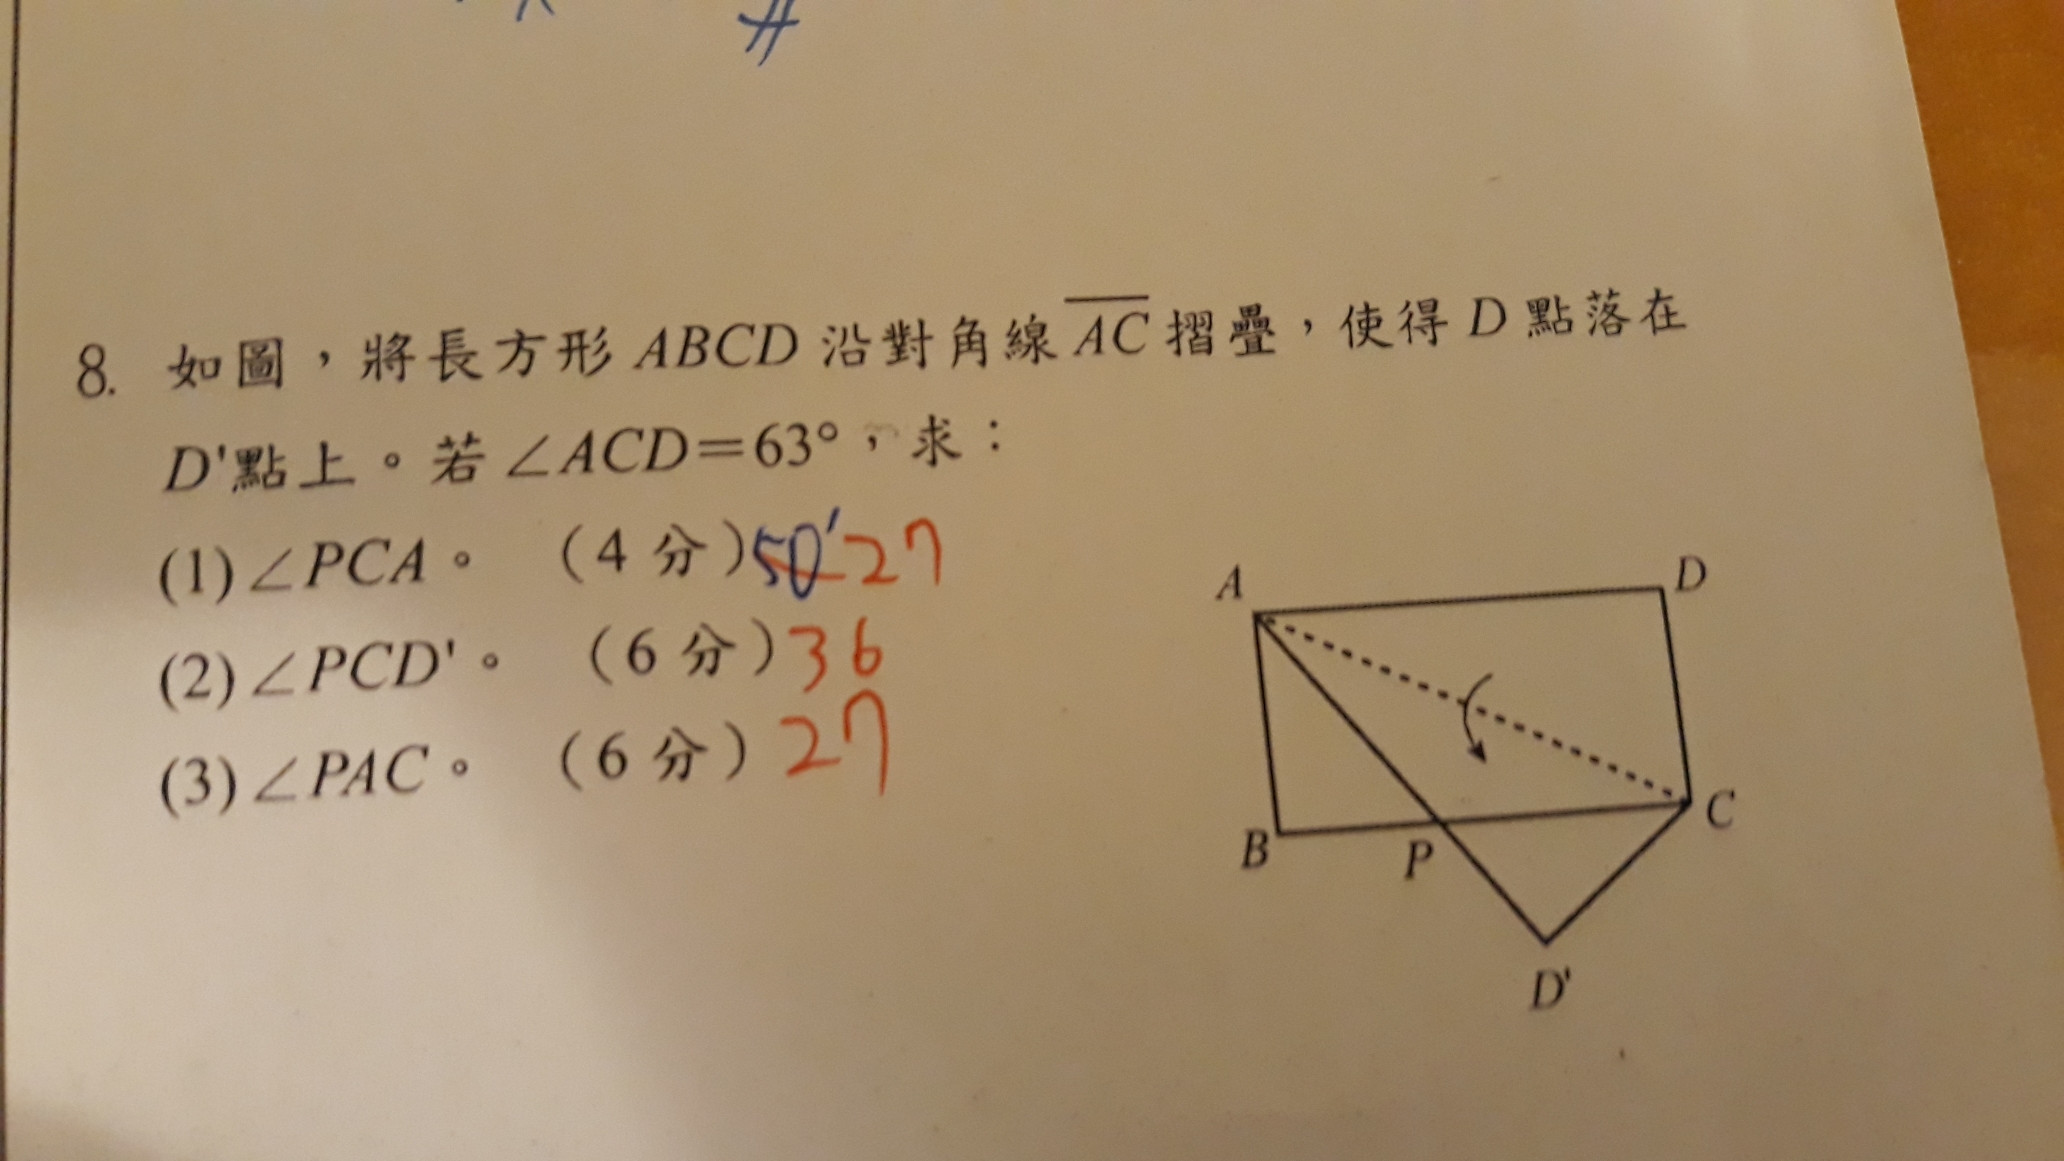 8. 如圖，將長方形 ABCD 沿對角線 AC 摺疊，使得 D 點落在
D'點上。若∠ACD=63°，求：
(1)∠PCA。 （4 分）50' 27
(2)∠PCD'。 （6 分）36
(3)∠PAC。 （6 分）27
A D
B P C
D'